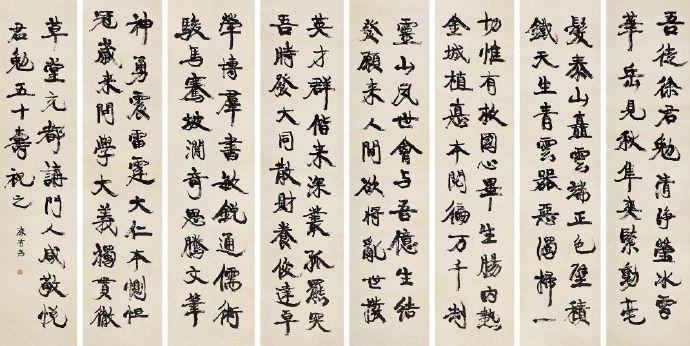 吾徒徐君勉清淨瑩冰雪
華岳見秋隼爽緊動毫
髮泰山矗雲端正色壁積
鐵天生青雲器惡濁掃一
切惟有救國心畢生腸内熱
金城植惪本閱徧万千制
靈山夙世會与吾憶生結
發願来人間欲將亂世撥
英才群偕来深叢孤羆突
吾時發大同散財養俊達卓
犖博羣書敏銳通儒術
駿馬騫坡澗奇思騰文筆
神勇震雷霆大仁本惻怛
冠歲来問學大義獨貫徹
草堂充都講門人咸敬悅
君勉五十壽祝之
康有為